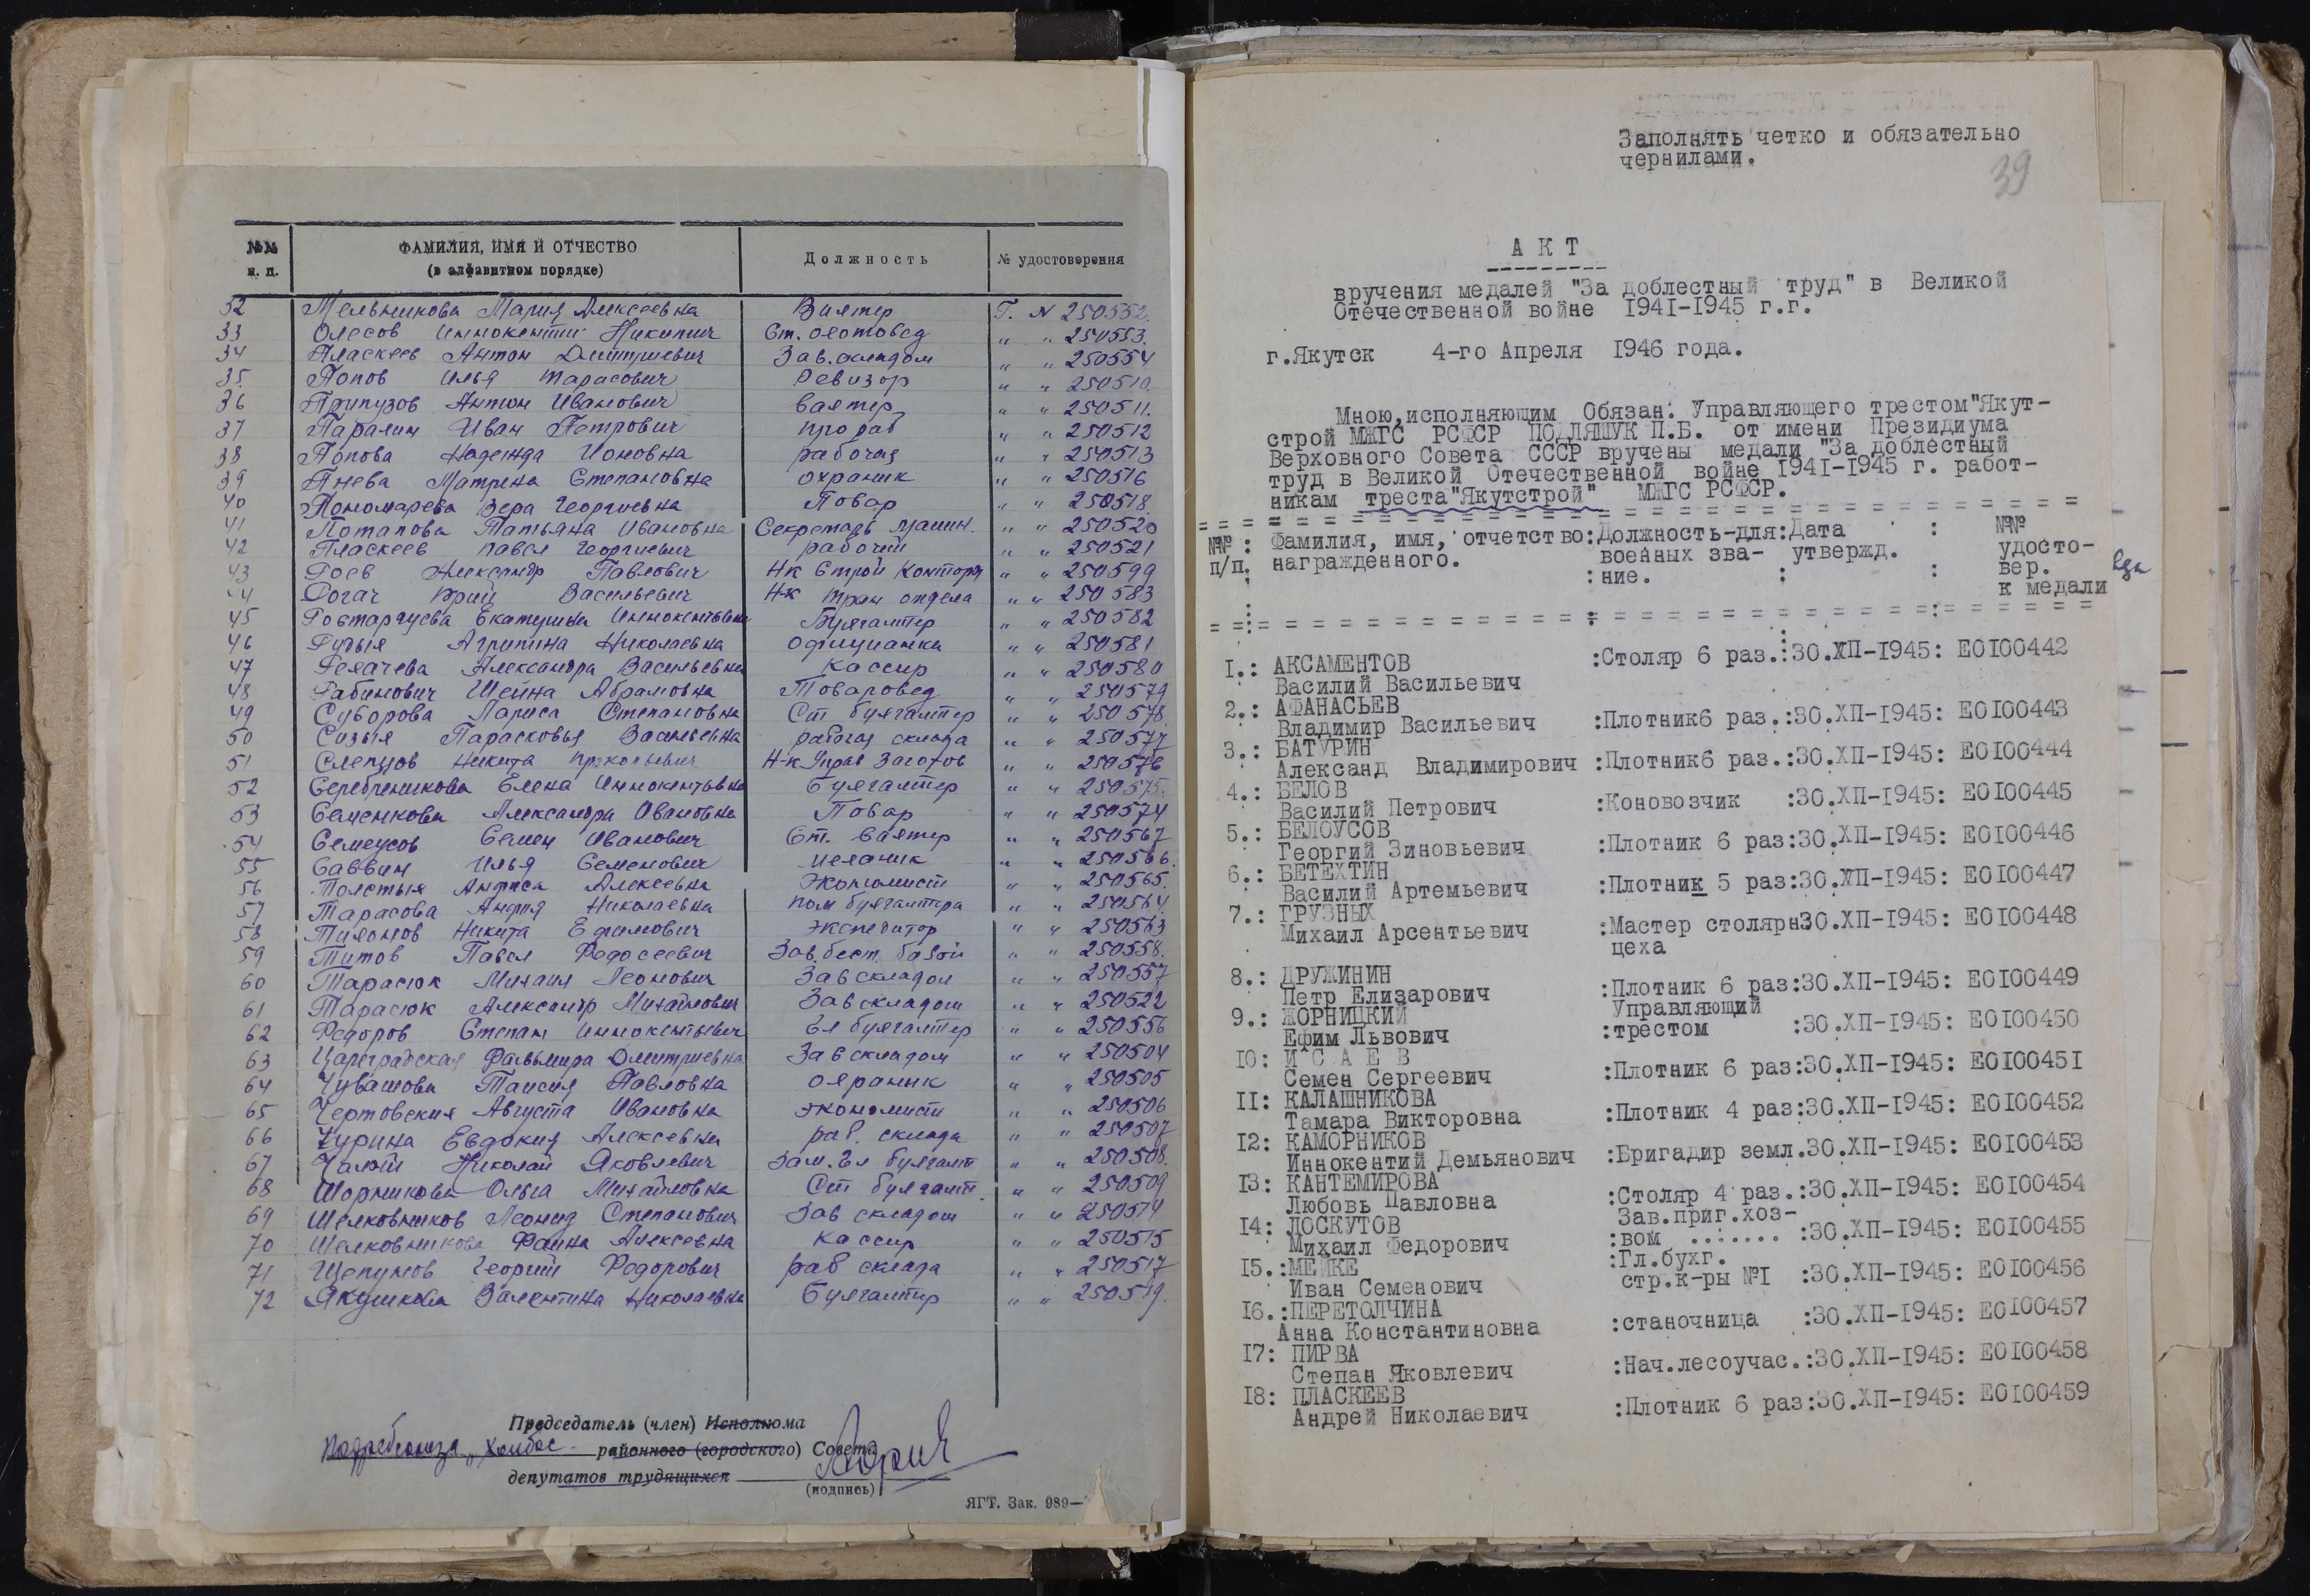 №№ п. п. ФАМИЛИЯ, ИМЯ И ОТЧЕСТВО (в алфавитном порядке) Должность № удостоверения
32 Мельникова Мария Алексеевна Вахтер Г. N 250552.
33 Олесов Иннокентий Никитич Ст. охотовед " " 250553.
34 Пласкеев Антон Дмитриевич Зав. складом " " 250554
35 Попов Илья Тарасович Ревизор " " 250510.
36 Припузов Антон Иванович вахтер " " 250511.
37 Паралин Иван Петрович прораб " " 250512
38 Попова Надежда Ионовна рабочая " " 250513
39 Пнева Матрена Степановна охраник " " 250516
40 Пономарева Вера Георгиевна Повар " " 250518.
41 Потапова Татьяна Ивановна Секретарь машин. " " 250520
42 Пласкеев Павел Георгиевич рабочий " " 250521
43 Гоев Александр Павлович Нк Строй Конторы " " 250599
44 Рогач Юрий Васильевич Н-к тран отдела " " 250583
45 Ровтаргуева Екатерина Иннокентьевна Бухгалтер " " 250582
46 Рудых Агрипина Николаевна официанка " " 250581
47 Александра Васильевна Кассир " " 250580
48 Рабинович Шейна Абрамовна Товаровед " " 250579
49 Суворова Лариса Степановна Ст бухгалтер " " 250578.
50 Сизых Парасковья Васильевна рабочая склада " " 250577
51 Слепцов Никита Прокопьевич Н-к Управ Заготов " " 250576
52 Серебренникова Елена Иннокентьевна Бухгалтер " " 250575.
53 Семенкова Александра Ивановна Повар " " 250574
54 Семеусов Семен Иванович Ст. вахтер " " 250567
55 Саввин Илья Семенович механик " " 250566.
56 Толстых Анфиса Алексеевна Экономист " " 250565.
57 Тарасова Мария Николаевна пом бухгалтера " " 250564.
58 Тихонов Никита Ефимович экспедитор " " 250563
59 Титов Павел Федосеевич Зав. бест. базой " " 250558.
60 Тарасюк Михаил Леонович Зав складом " " 250557
61 Тарасюк Александр Михайлович Зав складом " " 250522
62 Федоров Степан Иннокентьевич Гл бухгалтер " " 250556
63 Цареградская Фальмира Дмитриевна Зав складом " " 250504
64 Чувашова Таисия Павловна охраник " " 250505
65 Чертовских Августа Ивановна экономист " " 250506
66 Чурина Евдокия Алексеевна раб. склада " " 250507
67 Чалый Николай Яковлевич Зам. Гл бухгалт " " 250508.
68 Шорникова Ольга Михайловна Ст бухгалт. " " 250509
69 Шелковников Леонид Степанович Зав складом " " 250514
70 Шелковникова Фаина Алексеевна Кассир " " 250515
71 Щепунов Георгий Федорович раб склада " " 250517
72 Якушкова Валентина Николаевна Бухгалтер " " 250519.
Председатель (член) Исполкома
"Холбос" районного (городского) Совета
депутатов трудящихся
(подпись)
ЯГТ. Зак. 989—
Заполнять четко и обязательно
чернилами.
39
АКТ
вручения медалей "За доблестный труд" в Великой
Отечественной войне 1941-1945 г.г.
г.Якутск 4-го Апреля 1946 года.
Мною,исполняющим Обязан. Управляющего трестом"Якут-
строй МЖГС РСФСР ПОДЛЯШУК П.Б. от имени Президиума
Верховного Совета СССР вручены медали "За доблестный
труд в Великой Отечественной войне 1941-1945 г. работ-
никам треста"Якутстрой" МЖГС РСФСР.
№№ : Фамилия, имя, отчетство:Должность-для:Дата : №№
п/п. награжденного. военных зва- утвержд. удосто-
: ние. : : вер.
к медали
I.: АКСАМЕНТОВ :Столяр 6 раз.:30.ХП-1945: ЕОI00442
Василий Васильевич
2.: АФАНАСЬЕВ
Владимир Васильевич :Плотник6 раз.:30.ХП-1945: ЕОI00443
3.: БАТУРИН
Александ Владимирович :Плотник6 раз.:30.ХП-1945: ЕОI00444
4.: БЕЛОВ
Василий Петрович :Коновозчик :30.ХП-1945: ЕОI00445
5.: БЕЛОУСОВ
Георгий Зиновьевич :Плотник 6 раз:30.ХП-1945: ЕОI00446
6.: БЕТЕХТИН
Василий Артемьевич :Плотник 5 раз:30.ХП-1945: ЕОI00447
7.: ГРУЗНЫХ
Михаил Арсентьевич :Мастер столярн30.ХП-1945: ЕОI00448
цеха
8.: ДРУЖИНИН
Петр Елизарович :Плотник 6 раз:30.ХП-1945: ЕОI00449
9.: ЖОРНИЦКИЙ Управляющий
Ефим Львович :трестом :30.ХП-1945: ЕОI00450
I0: И С А Е В
Семен Сергеевич :Плотник 6 раз:30.ХП-1945: ЕОI00451
II: КАЛАШНИКОВА
Тамара Викторовна :Плотник 4 раз:30.ХП-1945: ЕОI00452
I2: КАМОРНИКОВ
Иннокентий Демьянович :Бригадир земл.30.ХП-1945: ЕОI00453
I3: КАНТЕМИРОВА
Любовь Павловна :Столяр 4 раз.:30.ХП-1945: ЕОI00454
I4: ЛОСКУТОВ Зав.приг.хоз-
Михаил Федорович :вом ....... :30.ХП-1945: ЕОI00455
I5.:МЕЙКЕ :Гл.бухг.
Иван Семенович стр.к-ры №I :30.ХП-1945: ЕОI00456
I6.:ПЕРЕТОЛЧИНА
Анна Константиновна :станочница :30.ХП-1945: ЕОI00457
I7: ПИРВА
Степан Яковлевич :Нач.лесоучас.:30.ХП-1945: ЕОI00458
I8: ПЛАСКЕЕВ
Андрей Николаевич :Плотник 6 раз:30.ХП-1945: ЕОI00459